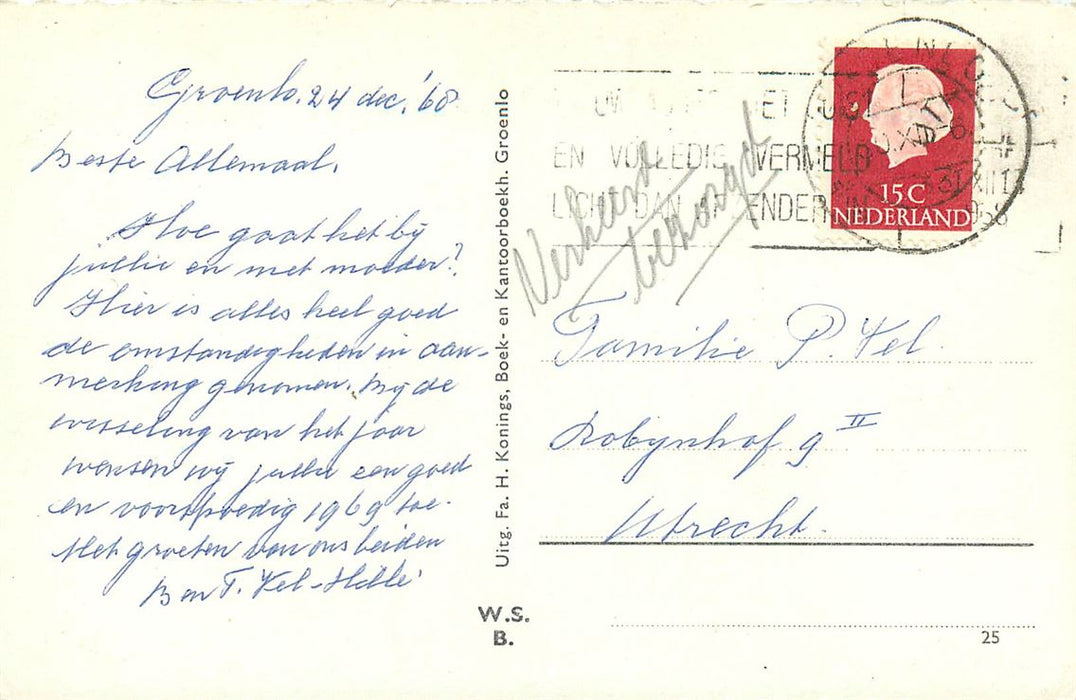 Groenlo. 24 dec. '68
Beste Allemaal.
Hoe gaat het bij
jullie en met moeder?
Hier is alles heel goed
de omstandigheden in aan-
merking genomen. Bij de
wisseling van het jaar
wensen wij jullie een goed
en voorspoedig 1969 toe.
Met groeten van ons beiden
B en T. Kel-Hille
Uitg. Fa. H. Konings, Boek- en Kantoorboekh. Groenlo
W.S.
B.
EN VOLLEDIG VERMELD
15 C
NEDERLAND
Verkeerd
bezorgd
Familie P. Kel.
Robijnhof 9 II
Utrecht.
25